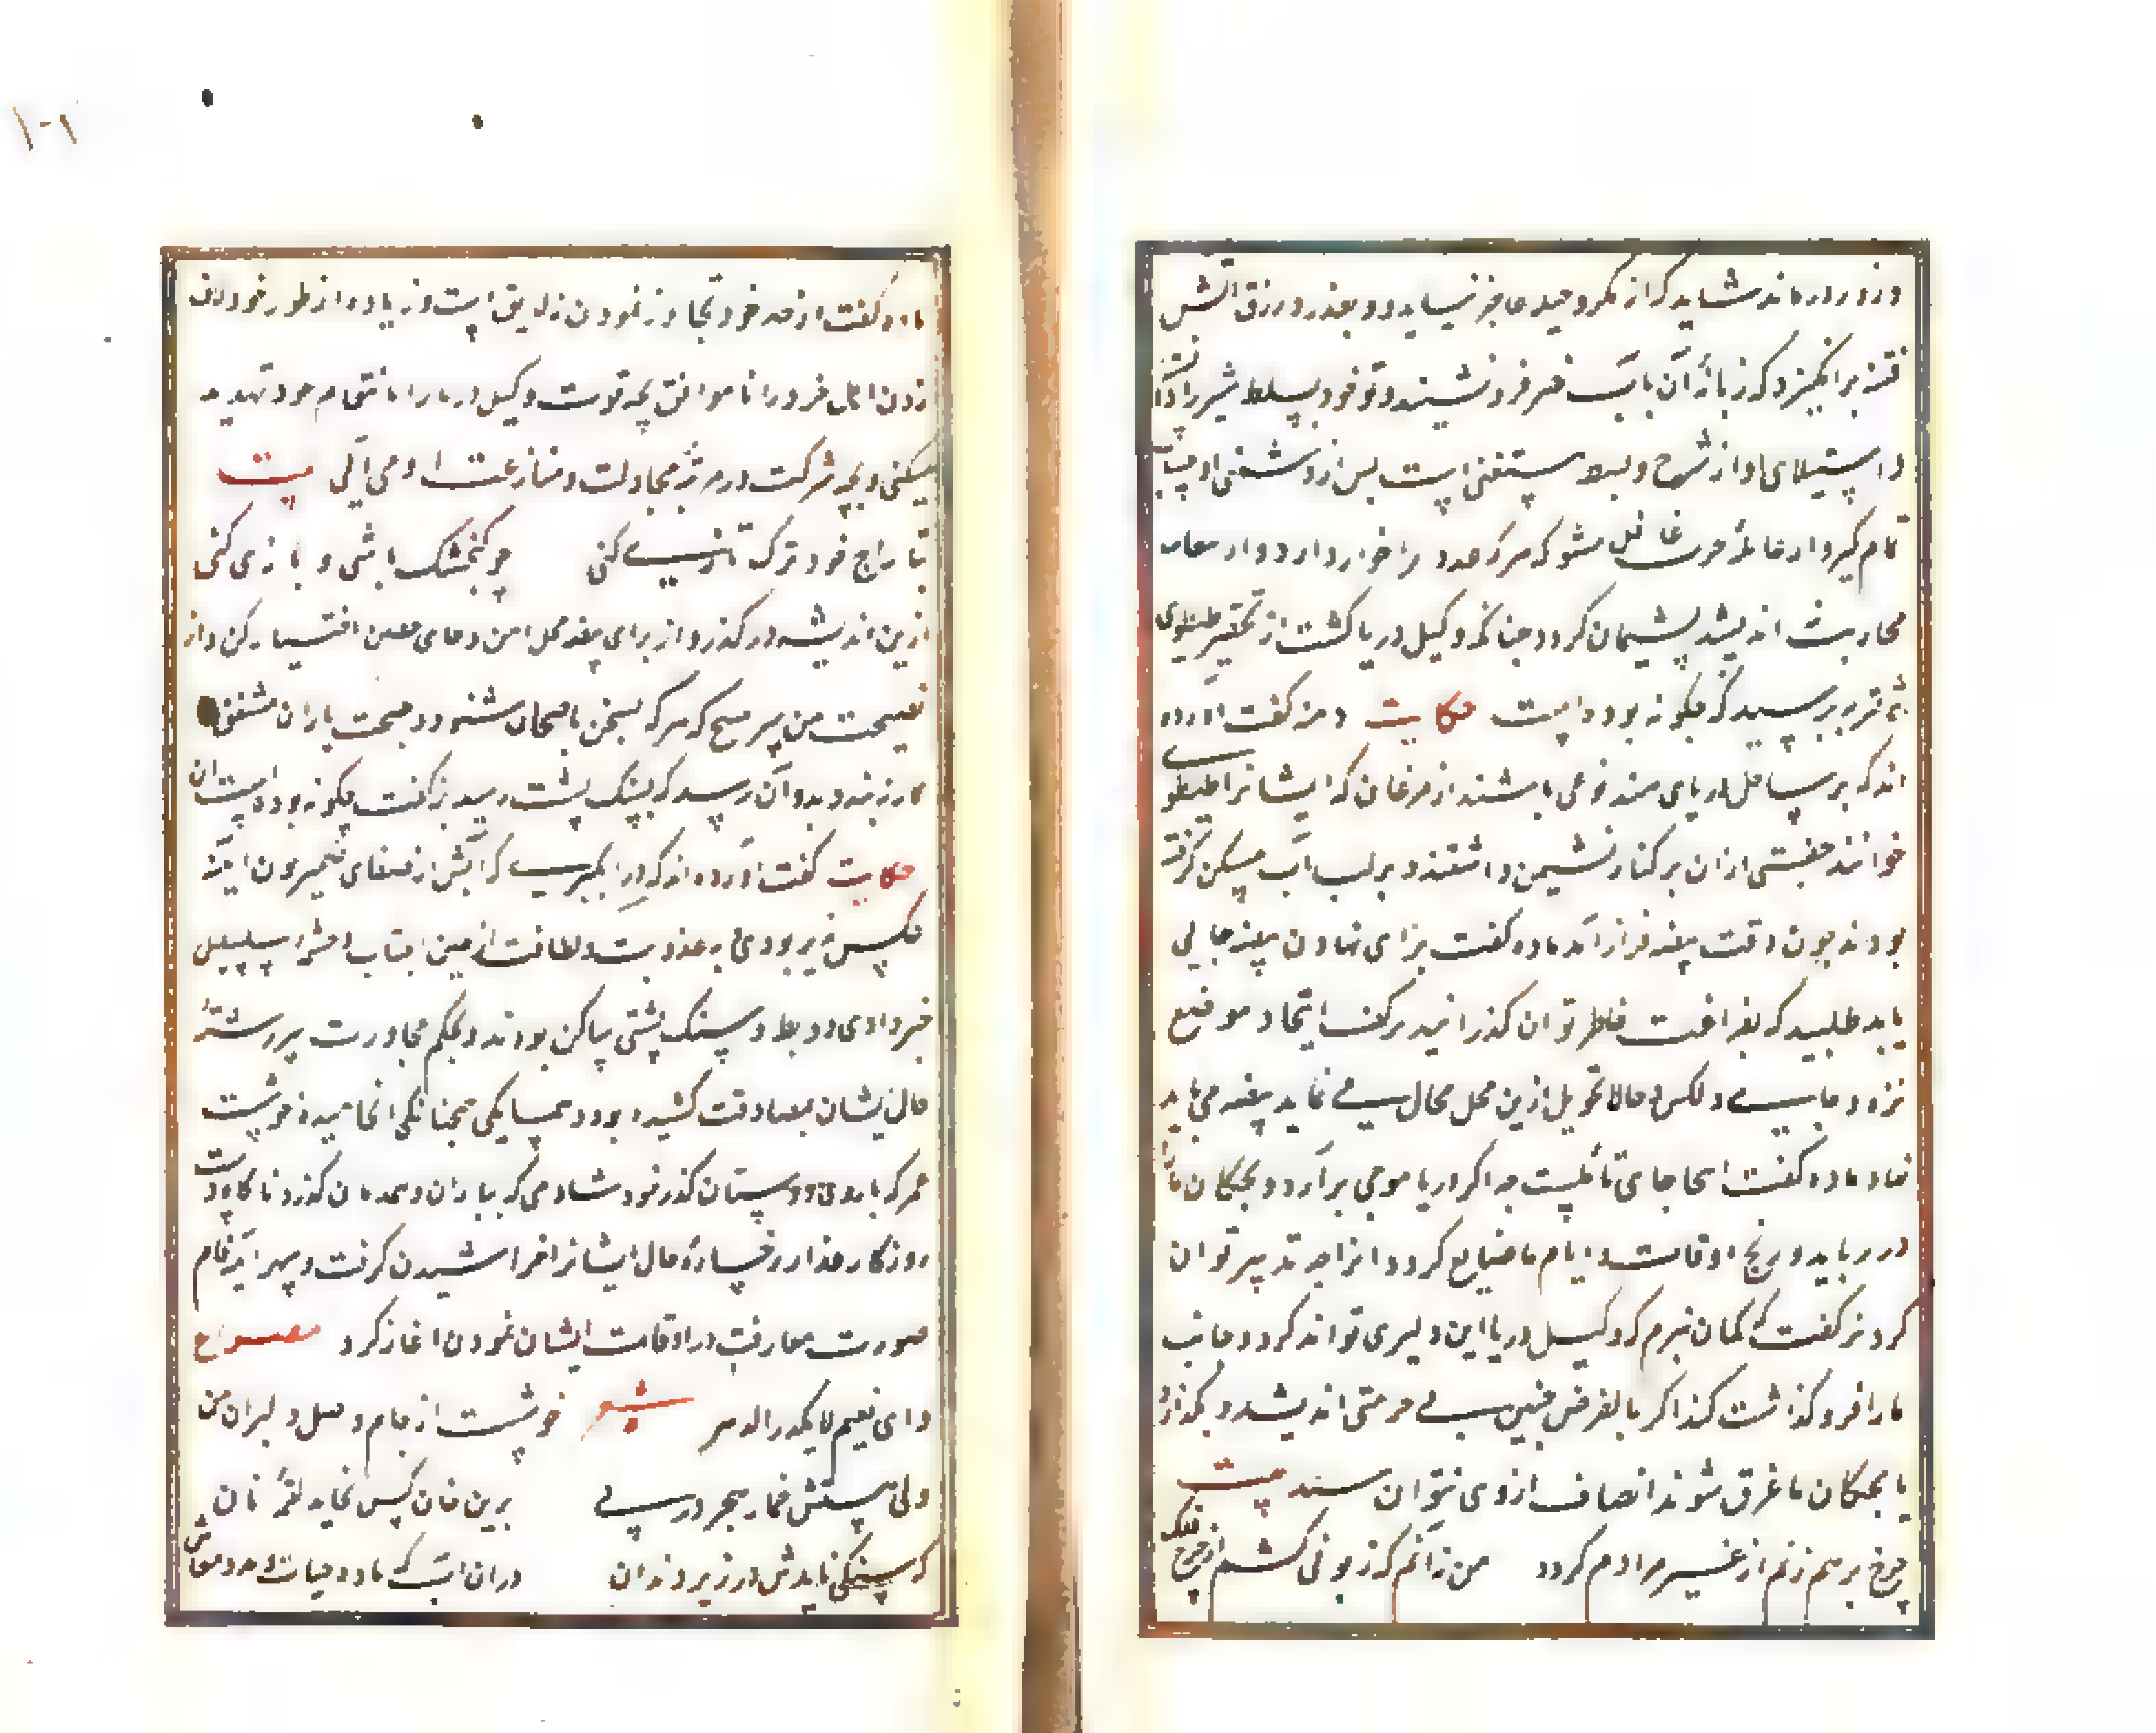 و زور درماند شاید که از مکر و حیله عاجز نیاید و بعذر و زرق آتش
فتنه برانگیزد که زبانهٔ آن بآب خنجر فرو ننشیند و وقوف بسلط شیر را
و استیلای او از شرح و بسط مستغنی است پس از دشمنی او حساب
تمام گیر و از غائلهٔ حرب غافل مشو که هر که عدو را خوار دارد و از معامله
محاربت اندیشد پشیمان گردد چنانکه وکیل دریا گشت از تحقیر طیطوی
شنزبه پرسید که چگونه بوده است حکایت دمنه گفت آورده
اند که بر ساحل دریای هند نوعی باشند از مرغان که ایشانرا طیطوی
خوانند جفتی ازان بر کنار نشیمن داشتند و بر لب آب مسکن گرفته
بودند چون وقت بیضه فراز آمد ماده گفت برای نهادن بیضه جایی
باید طلبید که بفراغت خاطر توان گذرانید نر گفت اینجا موضع
نزه و جایی دلکش و حالا تحویل ازین محل محال می نماید بیضه می باید
نهاد ماده گفت اینجا جای تأملست چه اگر دریا موجی برآرد و بچکان ما
در رباید و رنج اوقات و ایام ما ضایع گردد انرا چه تدبیر توان
کرد نر گفت گمان نبرم که وکیل دریا این دلیری تواند کرد و جانب
ما را فرو گذاشت کند اگر بالفرض چنین بی حرمتی اندیشد و بگذارد
تا بچکان ما غرق شوند انصاف از وی توان ستد بیت
چرخ برهم زنم ار غیر مرادم گردد من نه آنم که زبونی کشم از چرخ فلک
ماده گفت از حد خود تجاوز نمودن نه لایق است و زیاده از طور خود لاف
زدن اهل خرد را ناموافق بچه قوت وکیل دریا را بانتقام خود تهدید
میکنی و بچه شرکت در مرتبهٔ مجادلت و منازعت او می آئی بیت
تا راج خود ترک تازی کنی چو گنجشک باشی و بازی کنی
ازین اندیشه درگذر و از برای بیضه محل امن و جای حصین اختیار کن و از
نصیحت من سر مپیچ که هر که سخن ناصحان نشنود و نصیحت یاران مشفق
کار نبندد بدو آن رسد که بسنگ پشت رسید نر گفت چگونه بوده است آن
حکایت گفت آورده اند که در آبگیری که آبش از صفای ضمیر چون آینه
عکس پذیر بودی و بعذوبت و لطافت از عین الحیات و چشمهٔ سلسبیل
خبر دادی دو بط و سنگ پشتی ساکن بودند و بحکم مجاورت سررشتهٔ
حال ایشان بمصادقت کشیده بود و همسایگی بهمخانگی انجامیده خوشست
عمر که با روی دوستان گذرد شادمی که با یاران و همدمان گذرد ناگاه دست
روزگار غدار رخسارهٔ حال ایشانرا خراشیدن گرفت و سپهر آینه فام
صورت مفارقت در اوقات ایشان نمودن آغاز کرد مصراع
و ای نعیم لا یکدره الدهر شعر خوشست از جام وصل دلبران می
ولی مستیش خمار هجر در پی برین خوان کس نخاید لقمهٔ نان
که سنگی نایدش در زیر دندان دران آب که مادهٔ حیات و مدد معاش